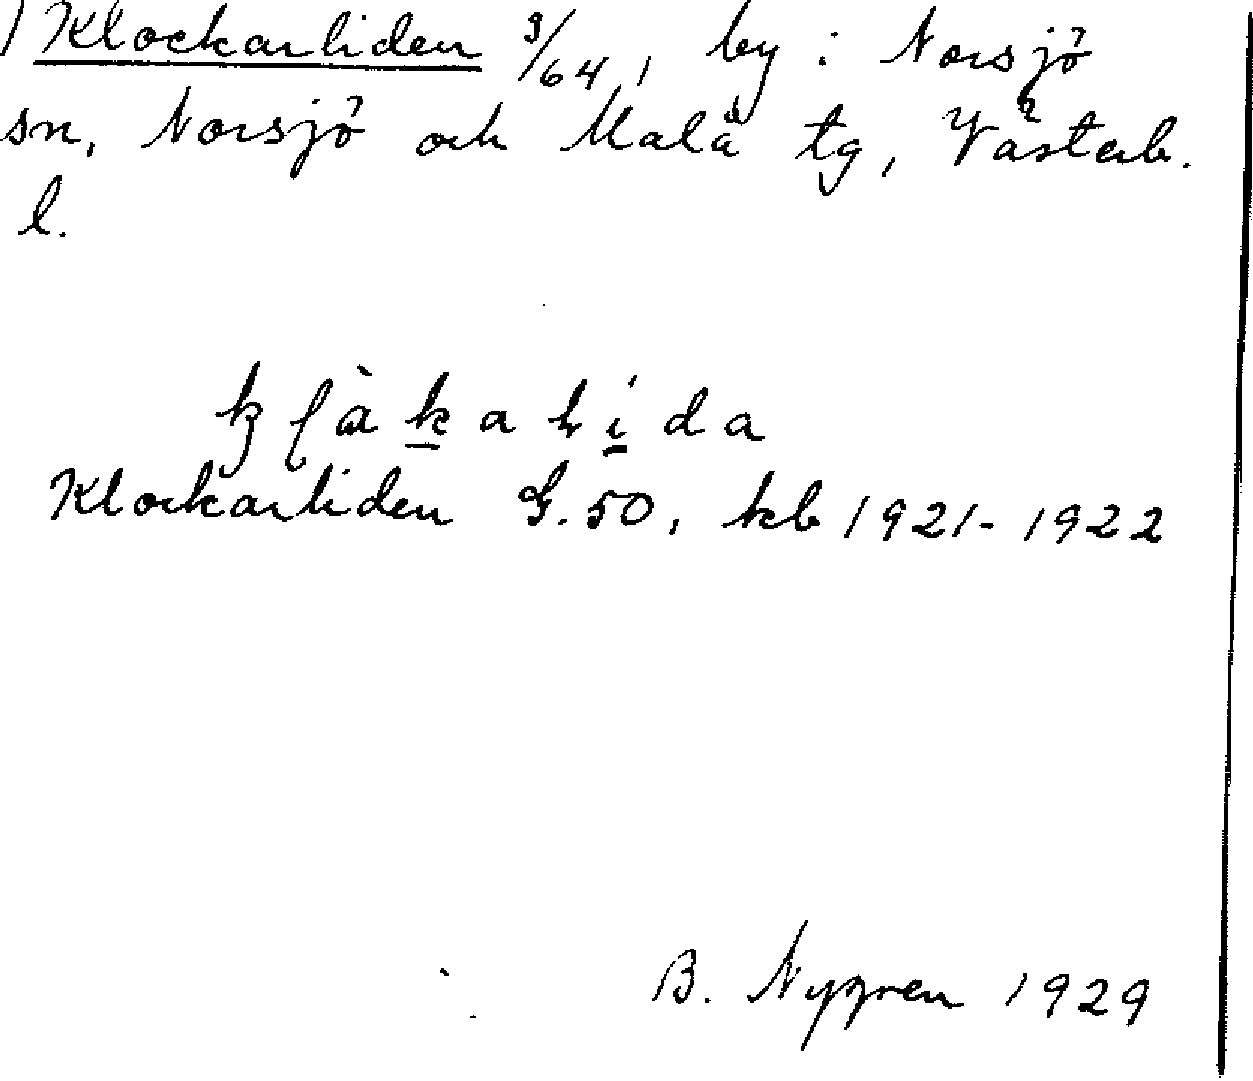 ) Klockarliden 9/64, by i Norsjö
sn, Norsjö och Malå tg, Västerb.
l.
Klockarliden G.50, kb 1921-1922
B. Nygren 1929